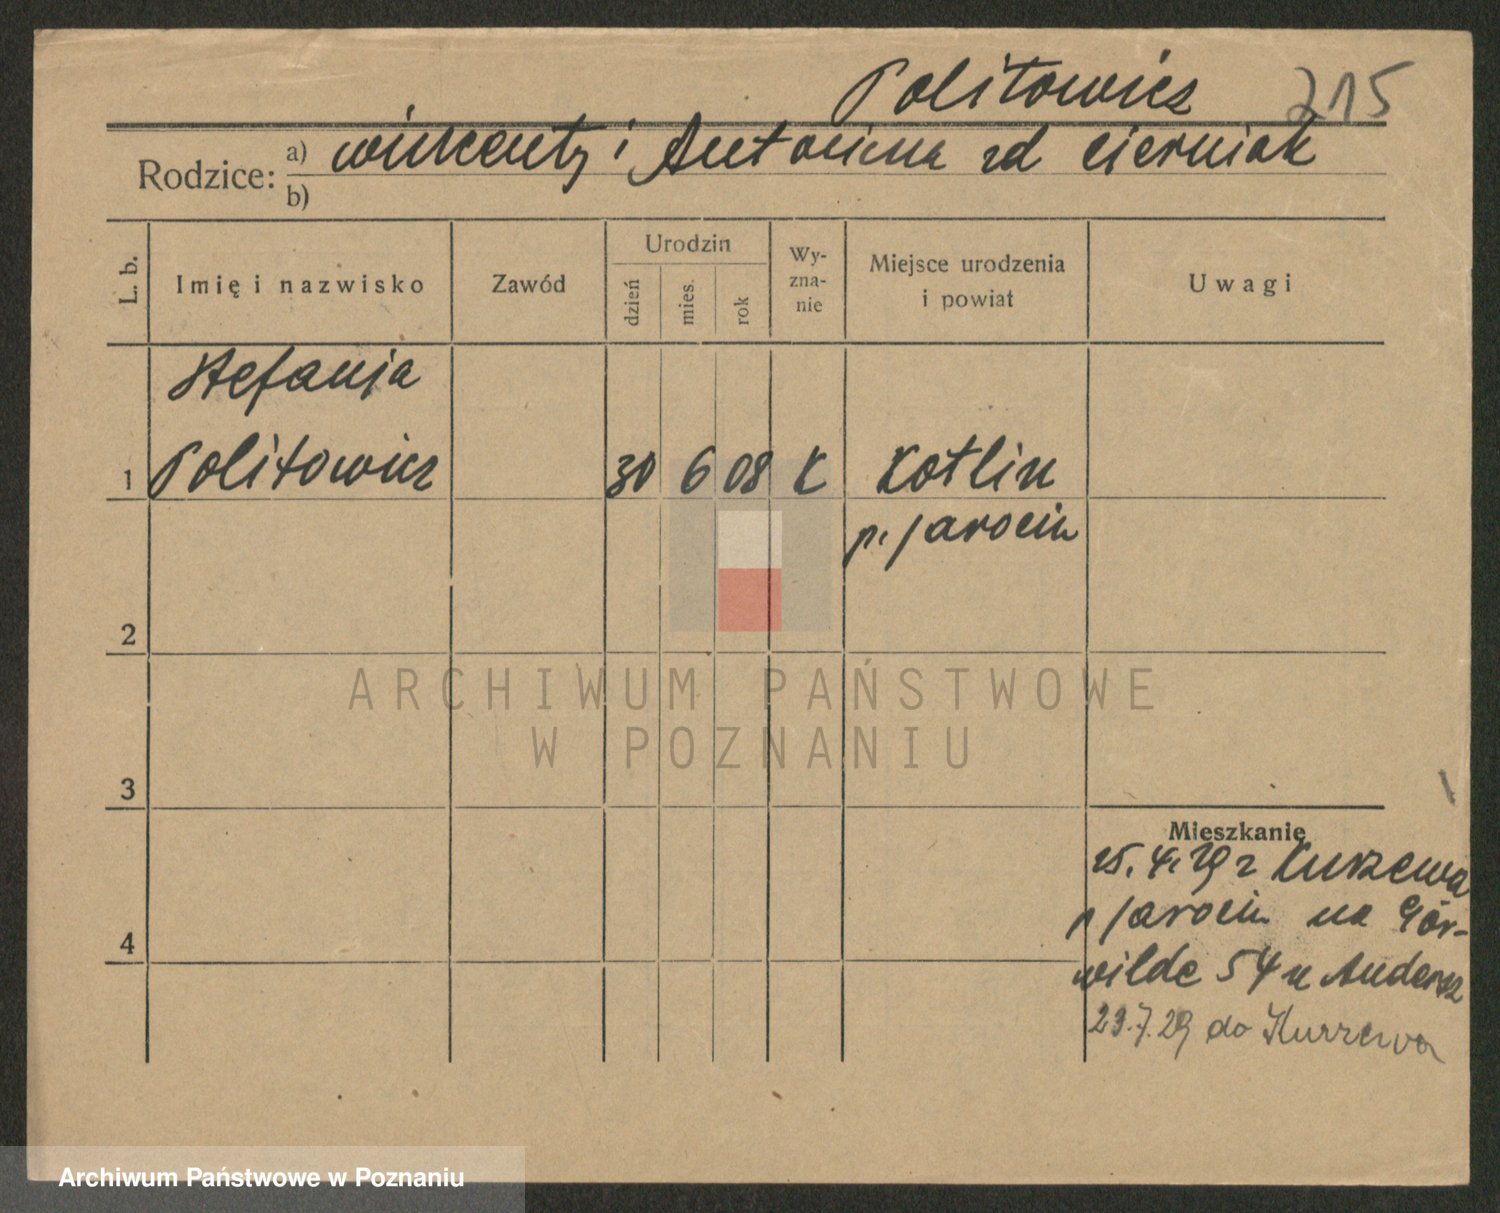 Politowicz 215
Rodzice: a) Wincenty i Antonina zd Cierniak
b)
L. b.
Imię i nazwisko
Zawód
Urodzin
dzień
mies.
rok
Wy-
zna-
nie
Miejsce urodzenia
i powiat
Uwagi
Stefanja
1 Politowicz 30 6 08 K Kotlin
p. Jarocin
2
3
4
Mieszkanie
25. 4. 29 z Kurzewa
p Jarocin na Gór-
wilde 54 u Andersz
29.7.29 do Kurzewa
ARCHIWUM PAŃSTWOWE
W POZNANIU
Archiwum Państwowe w Poznaniu